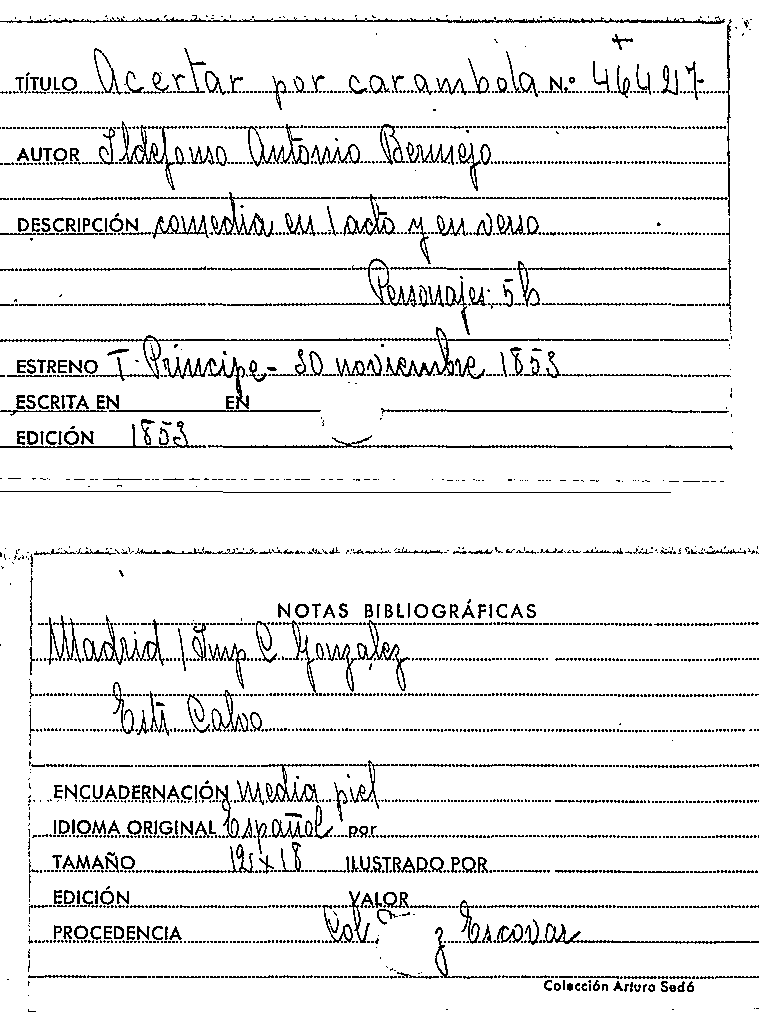 TÍTULO Acertar por carambola N.º 46427
AUTOR Ildefonso Antonio Bermejo
DESCRIPCIÓN comedia en 1 acto y en verso
Personajes: 5h
ESTRENO T. Príncipe - 30 noviembre 1853
ESCRITA EN EN
EDICIÓN 1853
NOTAS BIBLIOGRÁFICAS
Madrid / Imp C. Gonzalez
Calvo
ENCUADERNACIÓN media piel
IDIOMA ORIGINAL Español por
TAMAÑO 12x18 ILUSTRADO POR
EDICIÓN VALOR
PROCEDENCIA Col z Escovar
Colección Arturo Sedó